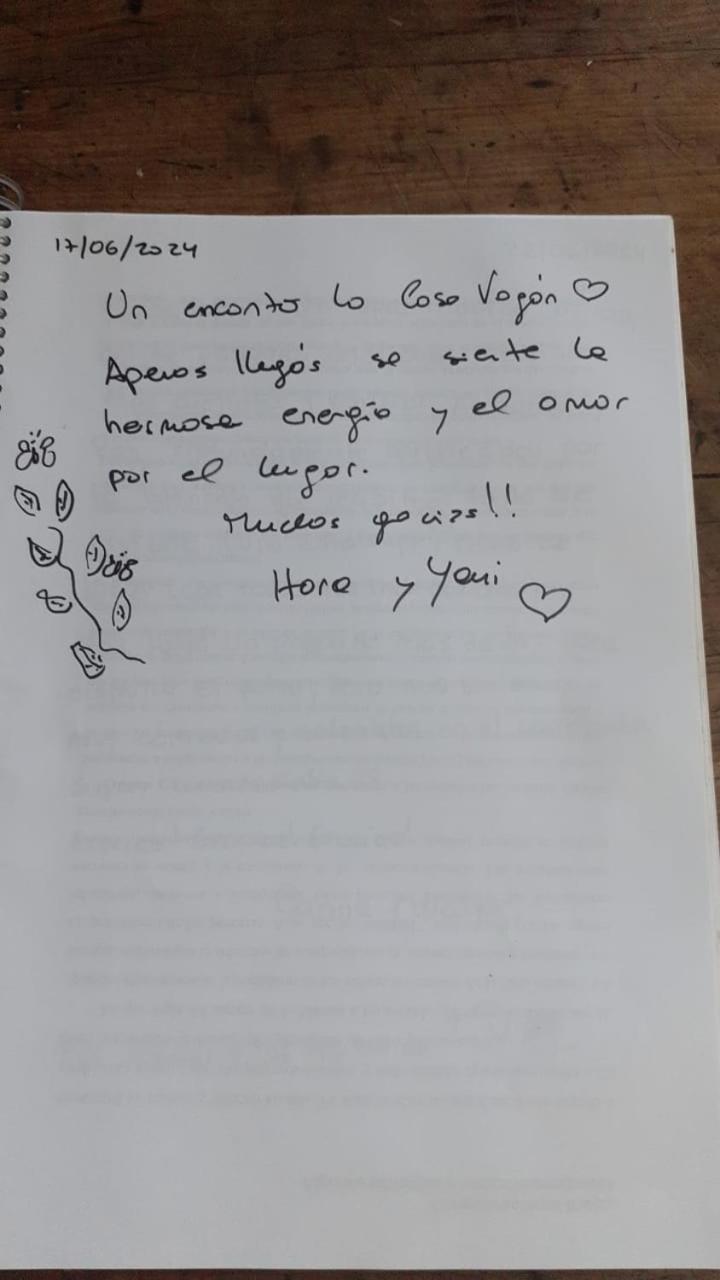 17/06/2024
Un encanto la Casa Vagón ♡
Apenas llegás se siente la
hermosa energía y el amor
por el lugar.
Muchas gracias!!
Hora y Yami ♡